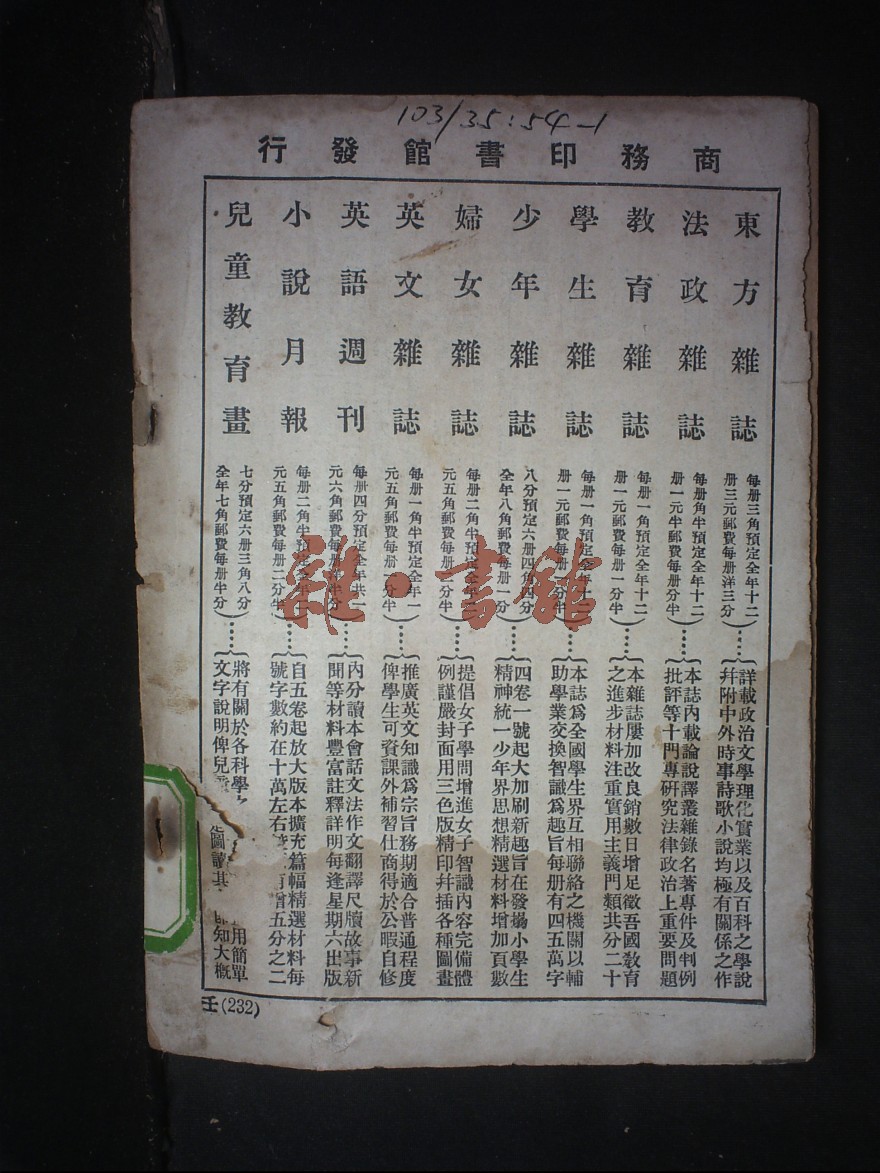 103/35:54-1
商務印書館發行
東方雜誌
每册三角預定全年十二
册三元郵費每册洋三分
詳載政治文學理化實業以及百科之學說
幷附中外時事詩歌小說均極有關係之作
法政雜誌
每册角半預定全年十二
册一元半郵費每册分半
本誌內載論說譯叢雜錄名著專件及判例
批評等十門專硏究法律政治上重要問題
教育雜誌
每册一角預定全年十二
册一元郵費每册一分半
本雜誌屢加改良銷數日增足徵吾國敎育
之進步材料注重實用主義門類共分二十
學生雜誌
每册一角預定全年十
册一元郵費每册一分半
本誌爲全國學生界互相聯絡之機關以輔
助學業交換智識爲趣旨每册有四五萬字
少年雜誌
八分預定六册四角四分
全年八角郵費每册一分
四卷一號起大加刷新趣旨在發揚小學生
精神統一少年界思想精選材料增加頁數
婦女雜誌
每册二角半預定全年
元五角郵費每册一分半
提倡女子學問增進女子智識內容完備體
例謹嚴封面用三色版精印幷插各種圖畫
英文雜誌
每册一角半預定全年一
元五角郵費每册一分半
推廣英文知識爲宗旨務期適合普通程度
俾學生可資課外補習仕商得於公暇自修
英語週刊
每册四分預定全年共一
元六角郵費每册半分
內分讀本會話文法作文翻譯尺牘故事新
聞等材料豐富註釋詳明每逢星期六出版
小說月報
每册二角半預定全年
元五角郵費每册二分半
自五卷起放大版本擴充篇幅精選材料每
號字數約在十萬左右 有增五分之二
兒童教育畫
七分預定六册三角八分
全年七角郵費每册半分
將有關於各科學 用簡單
文字說明俾兒 圖讀其 卽知大概
壬(232)
雜·書館